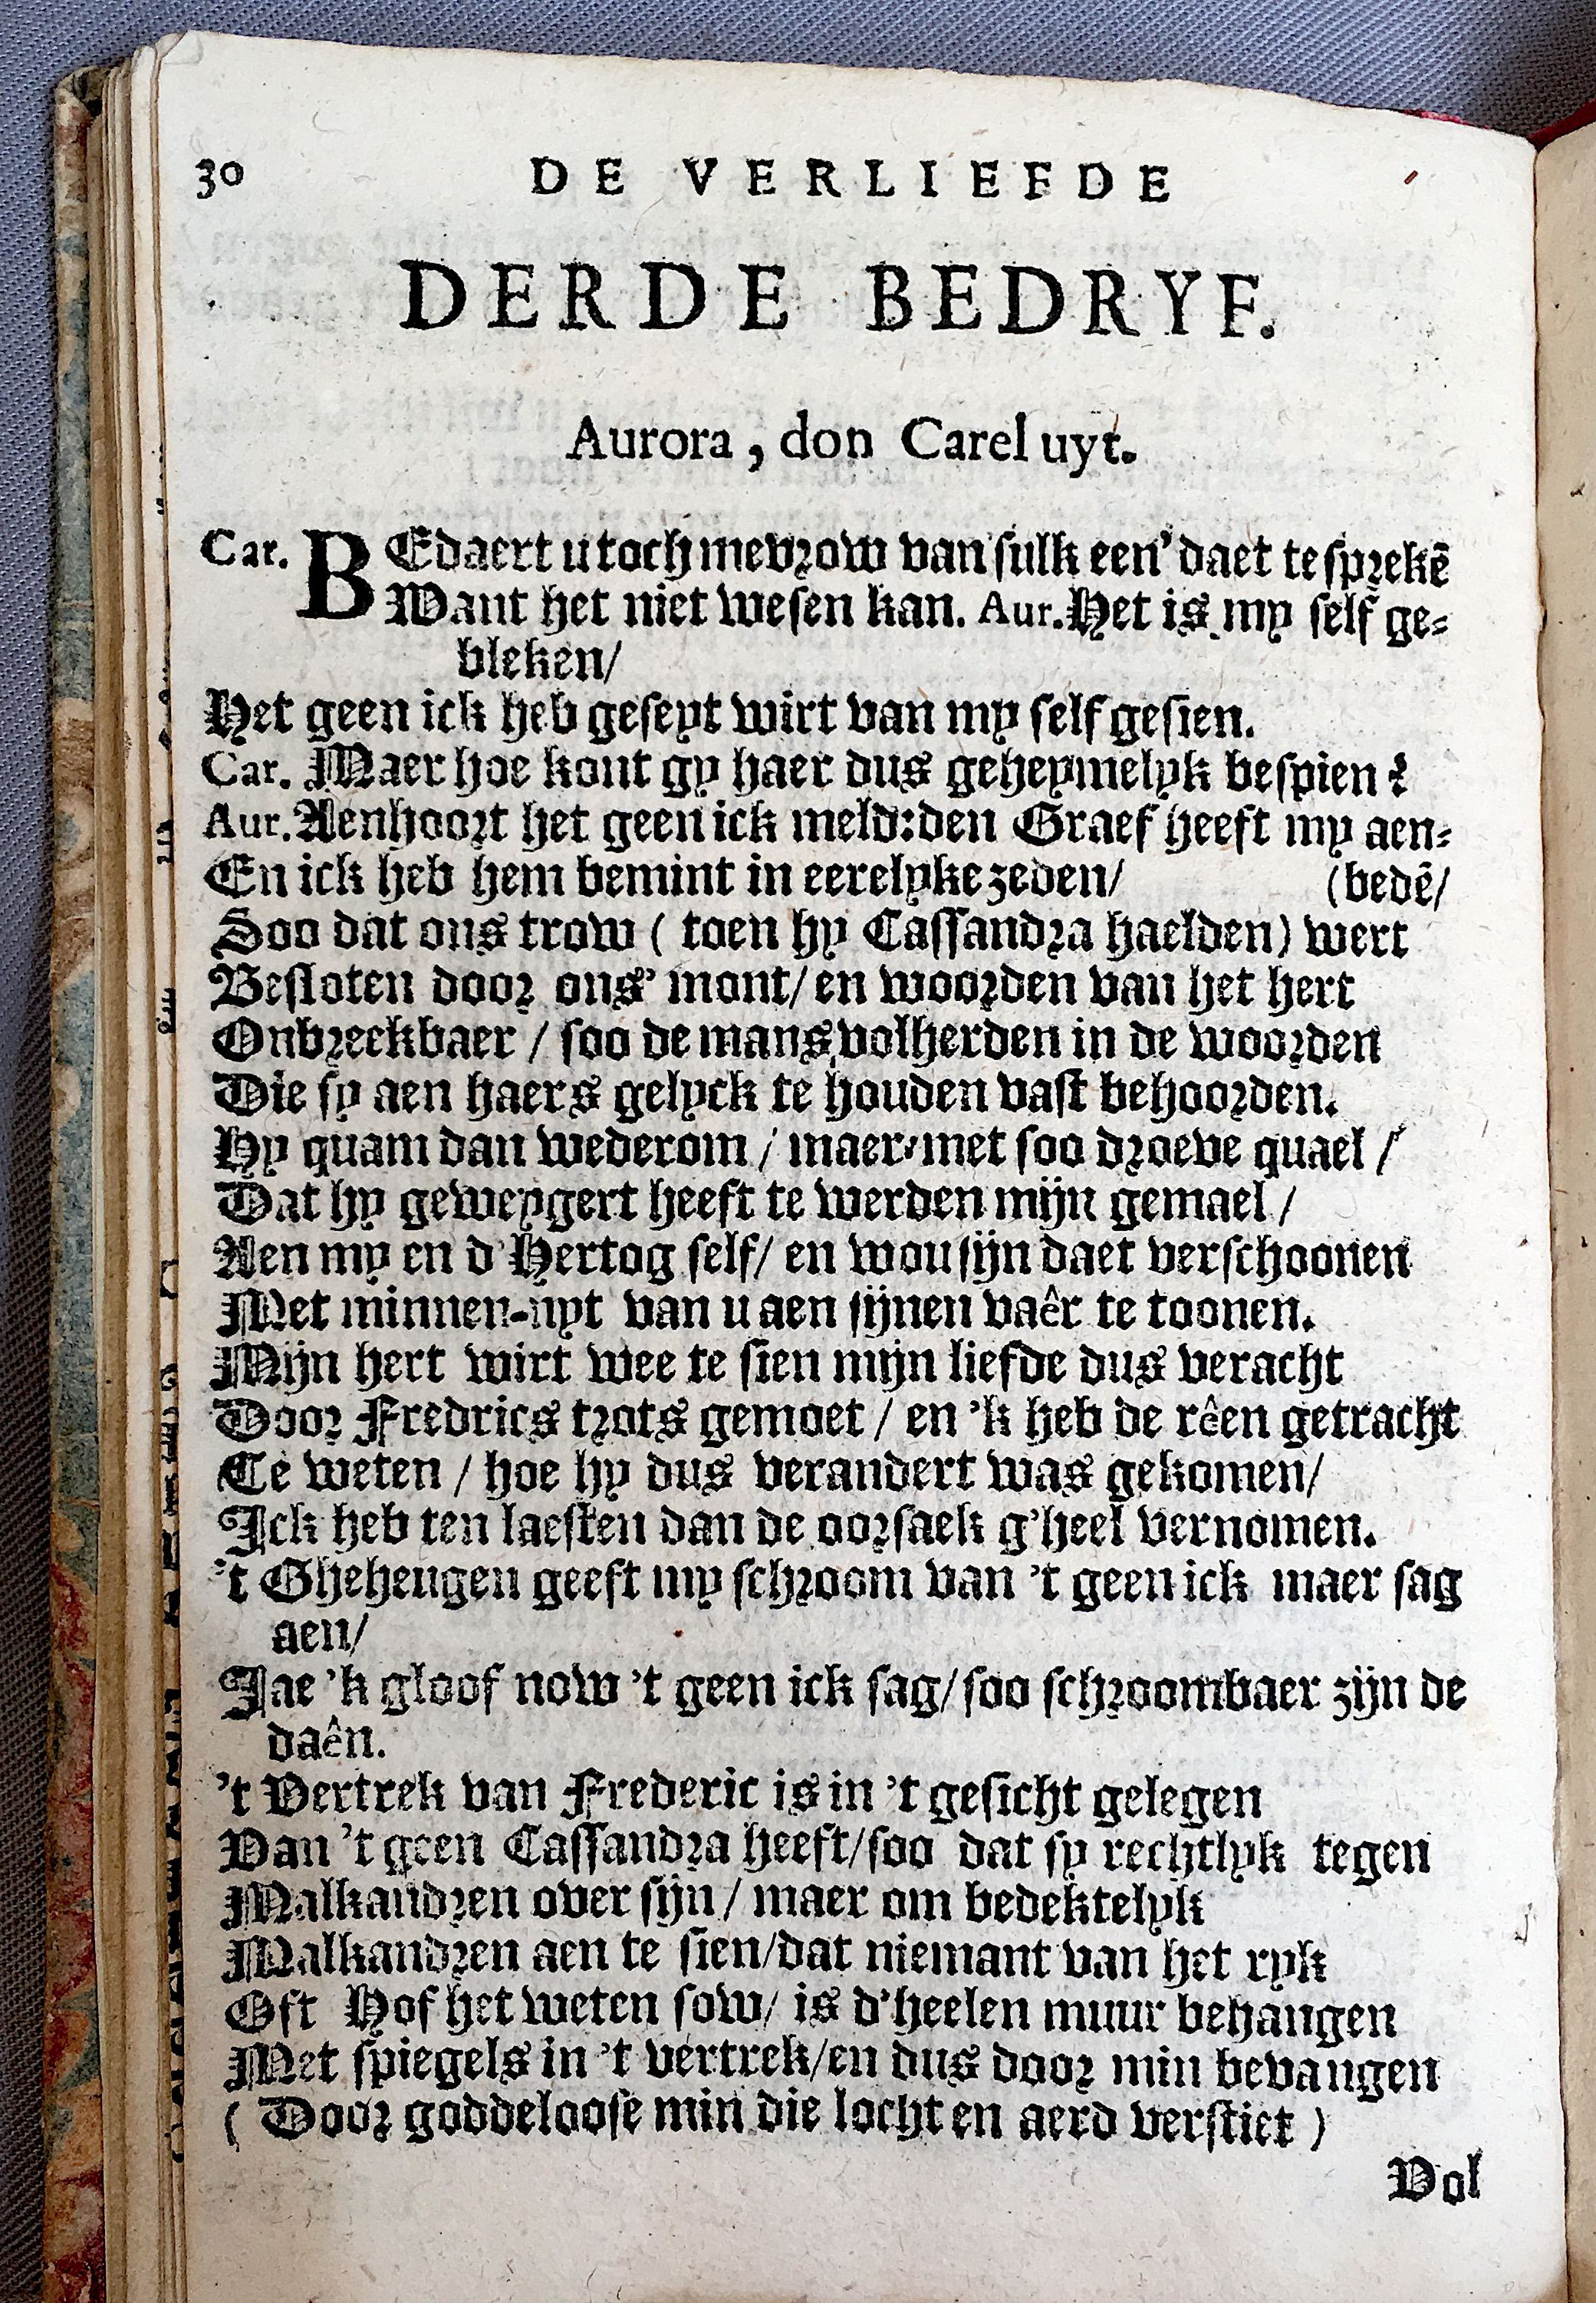 30 DE VERLIEFDE
DERDE BEDRYF.
Aurora, don Carel uyt.
Car. BEdaert u toch mevrow van sulk een' daet te sprekē
Want het niet wesen kan. Aur. Het is my self ge-
bleken/
Het geen ick heb geseyt wirt van my self gesien.
Car. Maer hoe kont gy haer dus geheymelyk bespien?
Aur. Aenhoort het geen ick meld: den Graef heeft my aen-
En ick heb hem bemint in eerelyke zeden/ (bedē/
Soo dat ons trow ( toen hy Cassandra haelden) wert
Besloten door ons' mont/ en woorden van het hert
Onbreckbaer / soo de mans volherden in de woorden
Die sy aen haers gelyck te houden vast behoorden.
Hy quam dan wederom / maer met soo droeve quael /
Dat hy geweygert heeft te werden mijn gemael /
Aen my en d'Hertog self/ en wou sijn daet verschoonen
Met minnen-nyt van u aen sijnen vaêr te toonen.
Mijn hert wirt wee te sien mijn liefde dus veracht
Door Fredrics trots gemoet / en 'k heb de rêen getracht
Te weten / hoe hy dus verandert was gekomen/
Ick heb ten laesten dan de oorsaek g'heel vernomen.
't Gheheugen geeft my schroom van 't geen ick maer sag
aen/
Jae 'k gloof now 't geen ick sag/ soo schroombaer zijn de
daên.
't Vertrek van Frederic is in 't gesicht gelegen
Van 't geen Cassandra heeft/ soo dat sy rechtlyk tegen
Malkandren over sijn/ maer om bedektelyk
Malkandren aen te sien/ dat niemant van het ryk
Oft Hof het weten sow/ is d'heelen muur behangen
Met spiegels in 't vertrek/ en dus door min bevangen
( Door goddeloose min die locht en aerd verstiet )
Vol